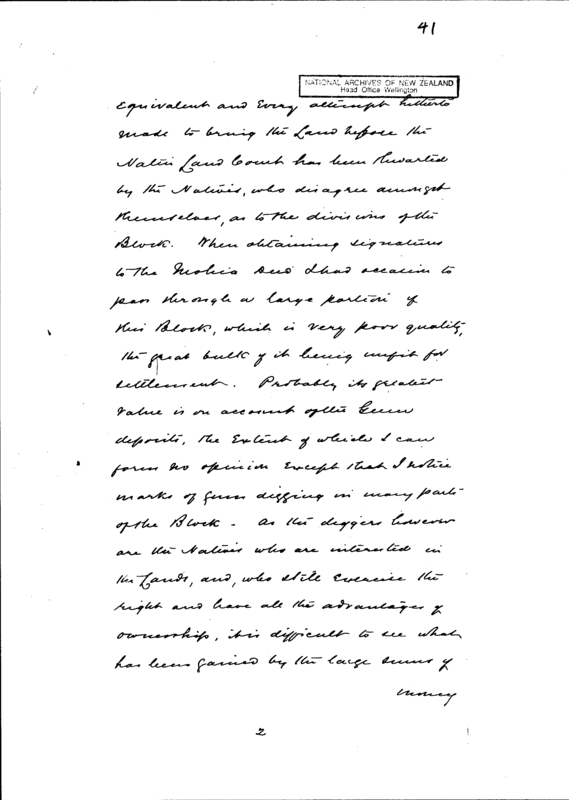 41
NATIONAL ARCHIVES OF NEW ZEALAND
Head Office Wellington
equivalent and every attempt hitherto
made to bring the Land before the
Native Land Court has been thwarted
by the Natives, who disagree amongst
themselves, as to the divisions of the
Block. When obtaining signatures
to the Deed I had occasion to
pass through a large portion of
this Block, which is very poor quality,
the great bulk of it being unfit for
settlement. Probably its greatest
value is on account of the Gum
deposits, the Extent of which I can
form no opinion Except that I notice
marks of gum digging in many parts
of the Block - As the diggers however
are the Natives who are interested in
the Lands, and, who still Exercise the
right and have all the advantages of
ownership, it is difficult to see what
has been gained by the large sums of
money
2